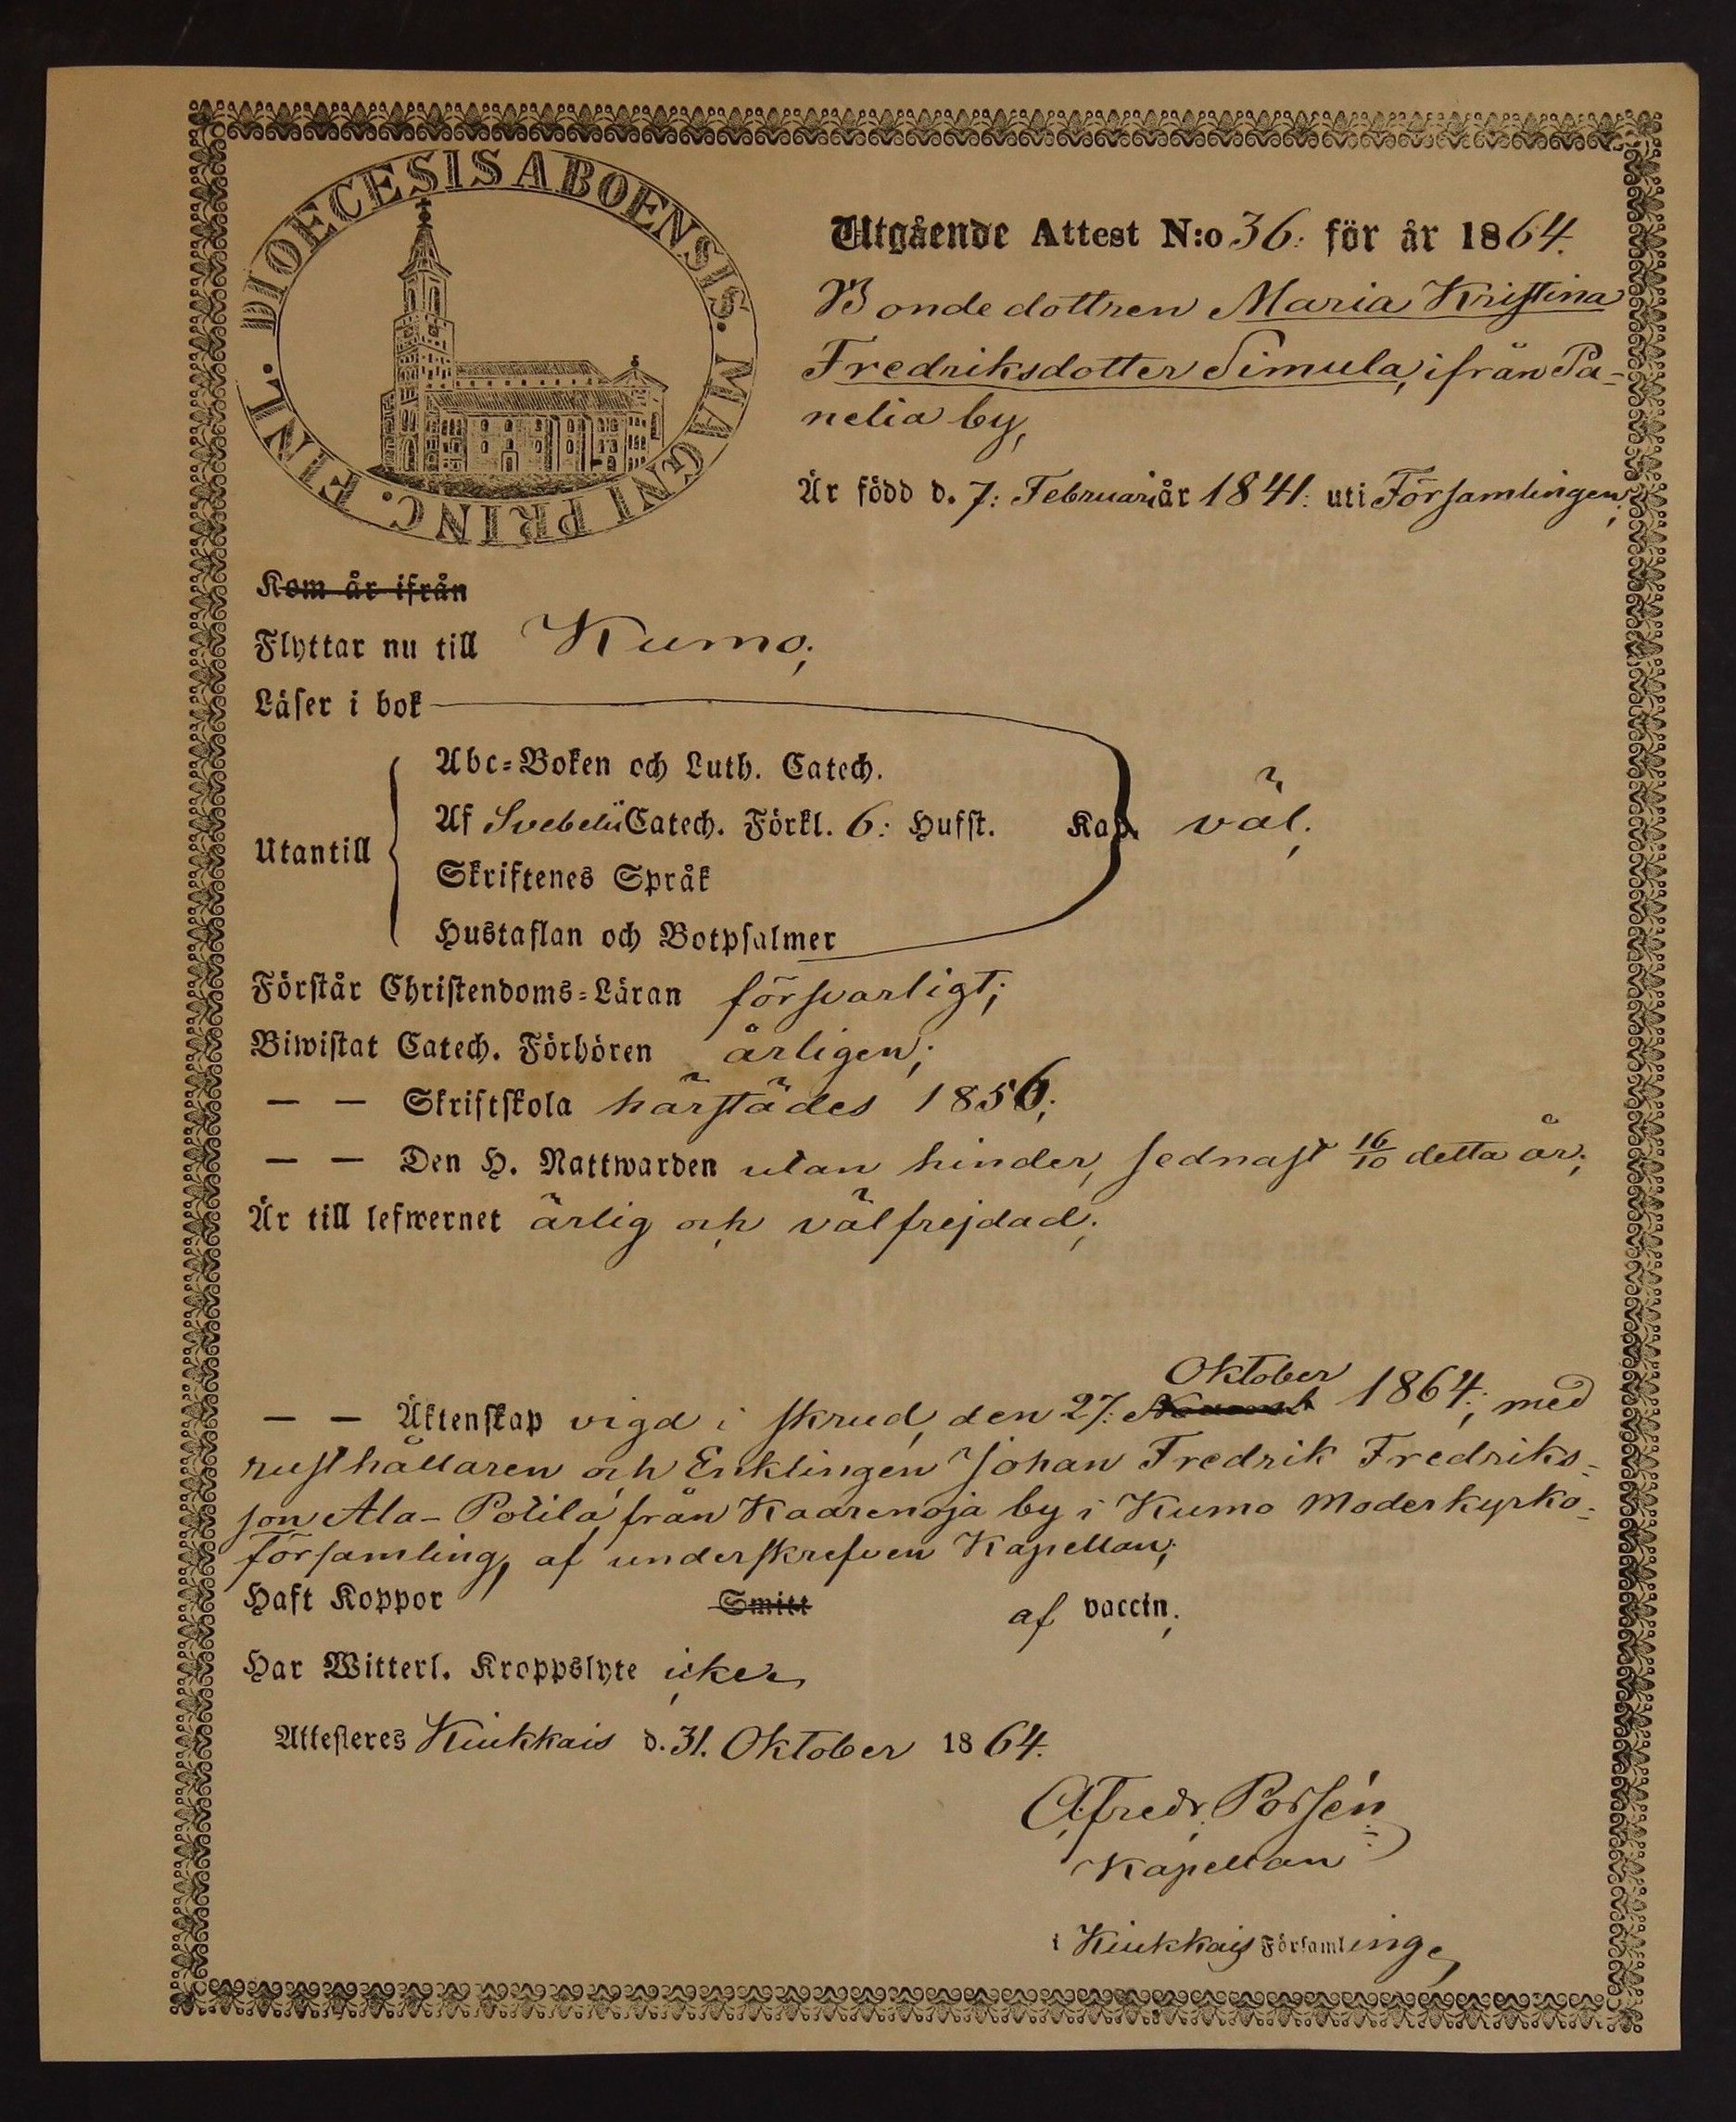 DIOECESIS ABOENSIS. MAGNI PRINC. FINL.
Utgående Attest N:o 36: för år 1864.
Bondedottren Maria Kristina
Fredriksdotter Simula, ifrån Pa-
nelia by,
Är född d. 7: Februari år 1841: uti Församlingen;
Kom år ifrån
Flyttar nu till Kumo;
Läser i bok
Utantill
Abc-Boken och Luth. Catech.
Af Svebelii Catech. Förkl. 6: Hufst. Kap. väl;
Skriftenes Språk
Hustaflan och Botpsalmer
Förstår Christendoms-Läran försvarligt;
Biwistat Catech. Förhören årligen;
— — Skriftskola härstädes 1856;
— — Den H. Nattwarden utan hinder, sednast 16/10 detta år;
Är till lefwernet ärlig och välfrejdad;
Oktober
— — Äktenskap vigd i skrud, den 27: 1864; med
rusthållaren och Enklingen Johan Fredrik Fredriks-
son Ala-Potila från Kaarenoja by i Kumo Moderkyrko-
församling, af underskrefven Kapellan;
Haft Koppor Smitt af vaccin;
Har Witterl. Kroppslyte icke,
Attesteres Kiukkais d. 31. Oktober 1864.
A. Fredr. Porsén
Kapellan
i Kiukkais Församling,